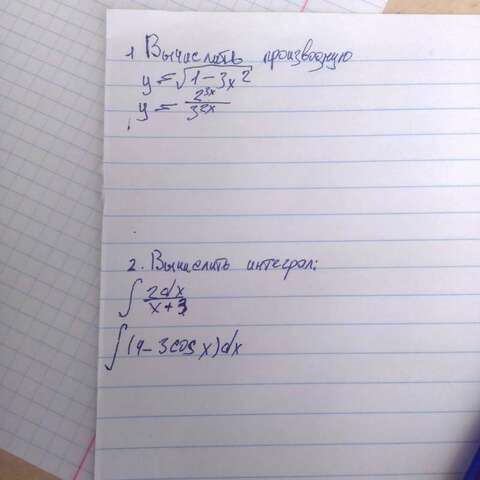 1 Вычислить производную
y = √1-3x²
y = 2^3x / 3^2x
2. Вычислить интеграл:
∫ 2dx / x+3
∫ (4-3cos x)dx